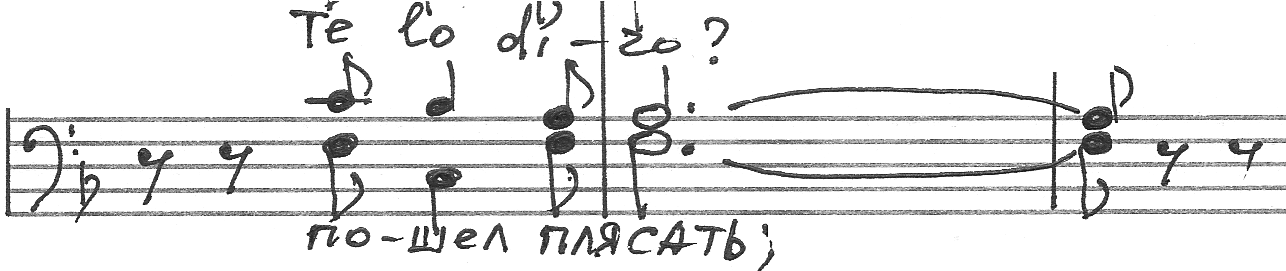 Te lo di-zo?
по-шел плясать;